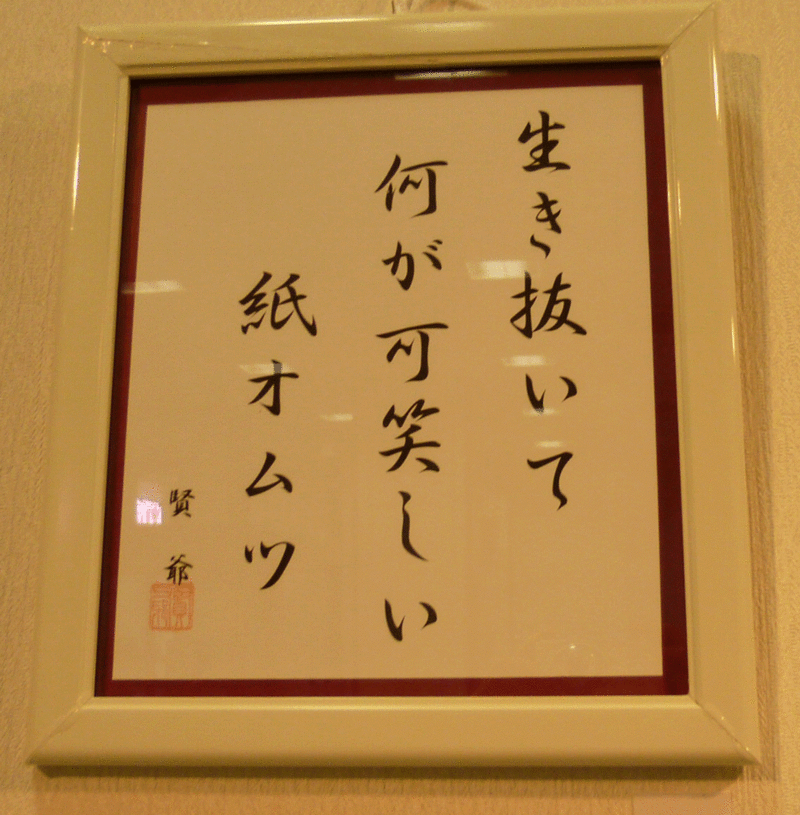 生き抜いて
何が可笑しい
紙オムツ
賢爺